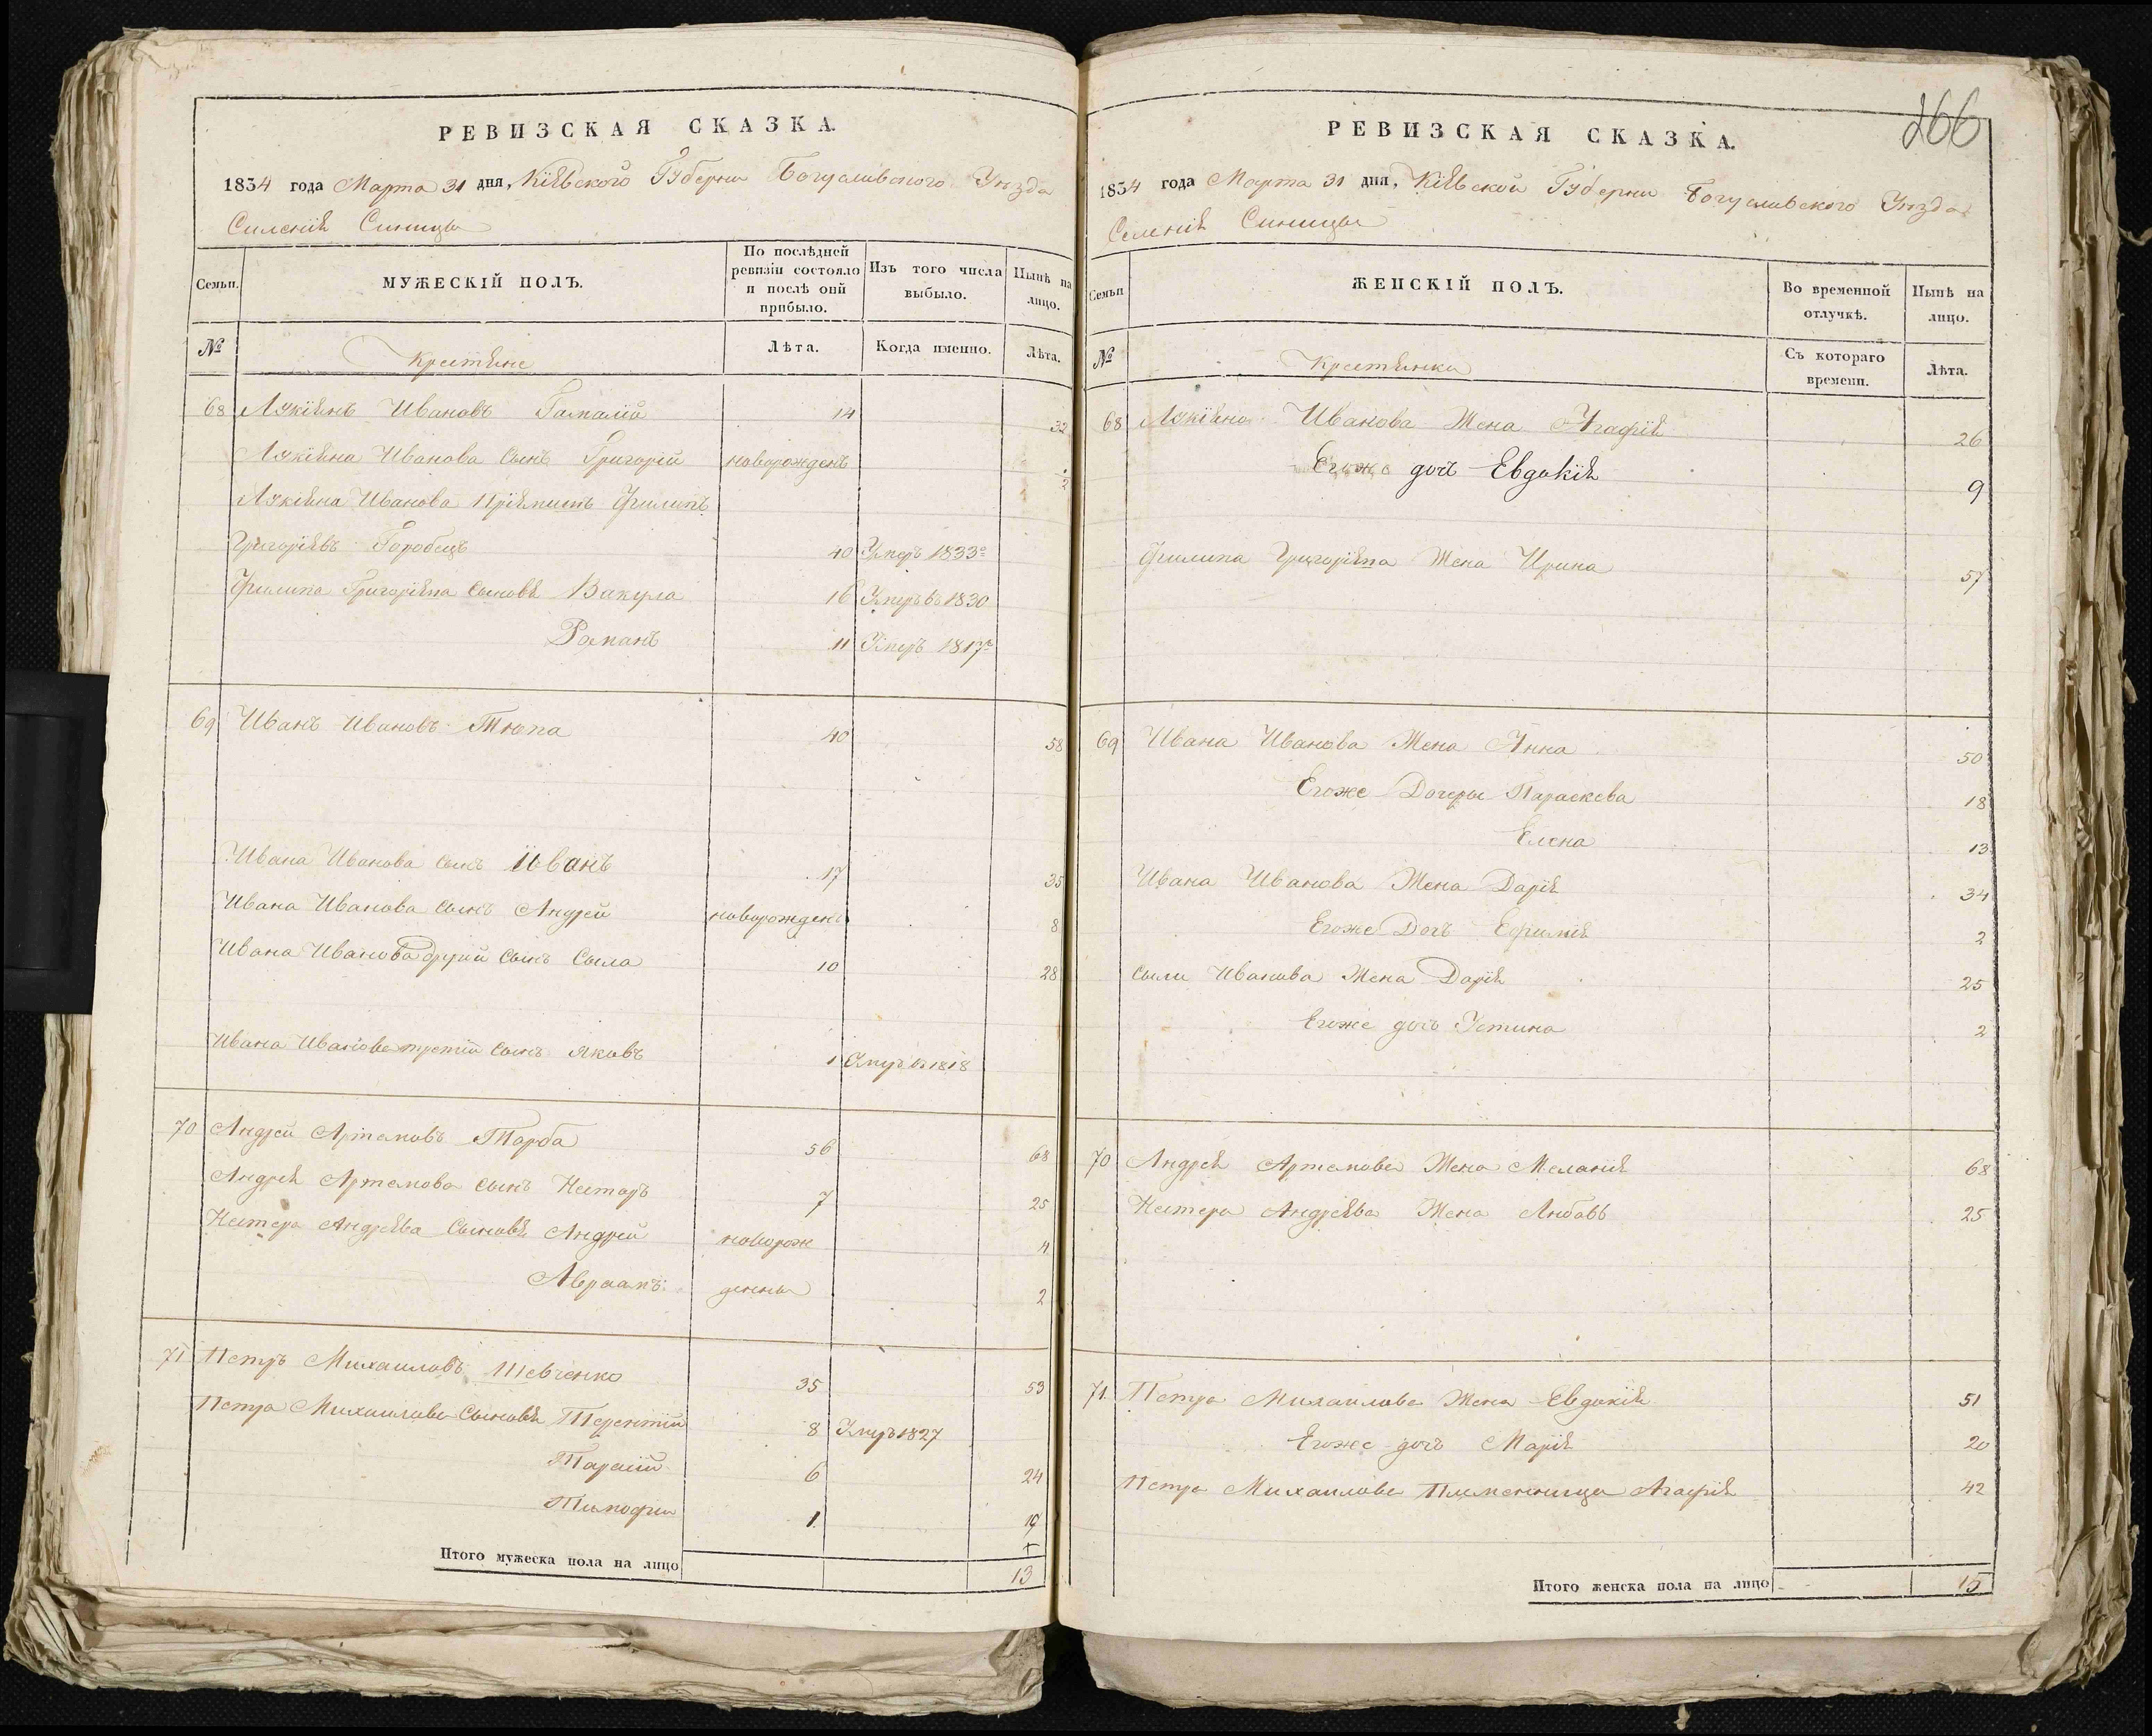 РЕВИЗСКАЯ СКАЗКА.
1834 года Марта 31 дня, Кіявъского Губерни Богуславского Уезда
Селенія Синицы
Семьи.
МУЖЕСКІЙ ПОЛЪ.
По послѣдней ревизіи состояло и послѣ онй прибыло.
Изъ того числа выбыло.
Нынѣ на лицо.
№
Крестяне
Лѣта.
Когда именно.
Лѣта.
68 Лукіянъ Ивановъ Гамалій 14 32
Лукіяна Иванова Сынъ Григорій новорожденъ 2
Лукіяна Иванова Пріямишъ Филипъ
Григоріявъ Горобецъ 40 Умеръ 1833г
Филипа Григоріява Сыновя Вакула 16 Умеръ въ 1830
Романъ 11 Умеръ 1817г
69 Иванъ Ивановъ Тюпа 40 58
Ивана Иванова сынъ Иванъ 17 35
Ивана Иванова сынъ Андрей новорожденъ 8
Ивана Иванова другий Сынъ Сыла 10 28
Ивана Иванова третій Сынъ Яковъ 1 Умеръ въ 1818
70 Андрей Артемовъ Торба 56 68
Андрея Артемова Сынъ Нестаръ 7 25
Нестера Андреява Сыновя Андрей новорож 4
Авраамъ денны 2
71 Петръ Михаиловъ Шевченко 35 53
Петра Михаилова Сыновя Терентій 8 Умеръ 1827
Тарасій 6 24
Тимофей 1 19
Итого мужеска пола на лицо 13
266
РЕВИЗСКАЯ СКАЗКА.
1834 года Марта 31 дня, Кіявъской Губерни Богуславского Уезда
Селенія Синицы
Семьи
ЖЕНСКІЙ ПОЛЪ.
Во временной отлучкѣ.
Нынѣ на лицо.
№
Крестянки
Съ котораго времени.
Лѣта.
68 Лукіяна Иванова Жена Агафія 26
Егоже дочъ Евдокія 9
Филипа Григоріява Жена Ирина 57
69 Ивана Иванова Жена Анна 50
Егоже Дочеры Параскева 18
Елена 13
Ивана Иванова Жена Дарія 34
Егоже Дочъ Ефимія 2
Сыли Иванова Жена Дарія 25
Егоже дочъ Устина 2
70 Андрея Артемова Жена Меланія 68
Нестера Андреява Жена Любавъ 25
71 Петра Михаилова Жена Евдокія 51
Егоже дочъ Марія 20
Петра Михаилова Племенница Агафія 42
Итого женска пола на лицо 15